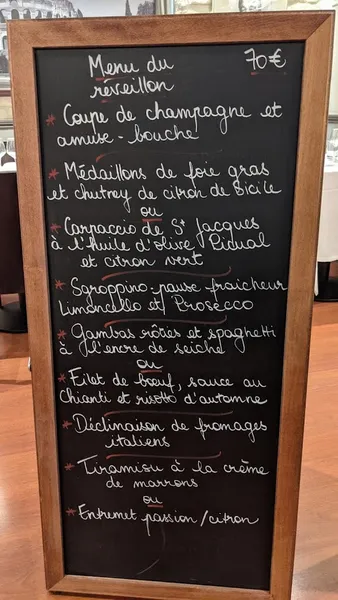 Menu du 70€
réveillon
* Coupe de champagne et
amuse-bouche
* Médaillons de foie gras
et chutney de citron de Sicile
ou
* Carpaccio de St Jacques
à l'huile d'olive Picual
et citron vert
* Sgroppino: pause fraîcheur
Limoncello et Prosecco
* Gambas rôties et spaghetti
à l'encre de seiche
ou
* Filet de bœuf, sauce au
Chianti et risotto d'automne
* Déclinaison de fromages
italiens
* Tiramisu à la crème
de marrons
ou
* Entremet passion/citron